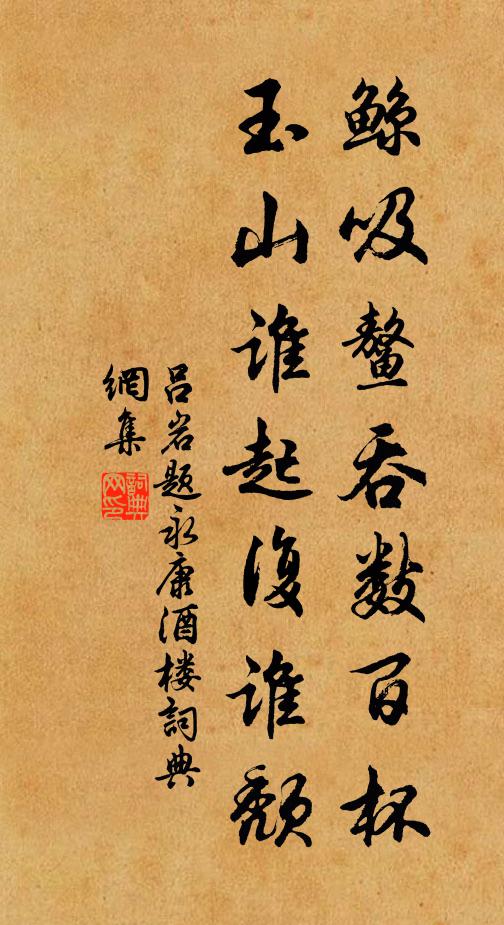 鲸吸鳌吞数百杯
玉山谁起復谁颓
吕岩题永康酒楼詞典
網集
詞典
网印